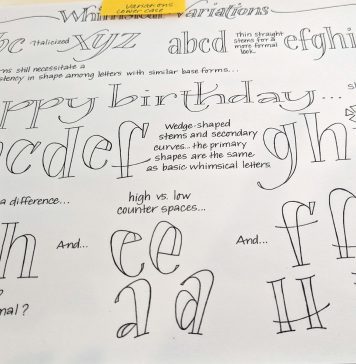 Variations
Lower case
Whimsical Variations
bc Italicized xyz abcd Thin straight
stems for a
more formal
look. efghi
still necessitate a
in shape among letters with similar base forms...
ppy birthday...
cdef Wedge-shaped
stems and secondary
curves.. the primary
shapes are the same
as basic whimsical letters. gh
a difference...
high vs. low
counter spaces...
h And... ee And... f f
a a H
?